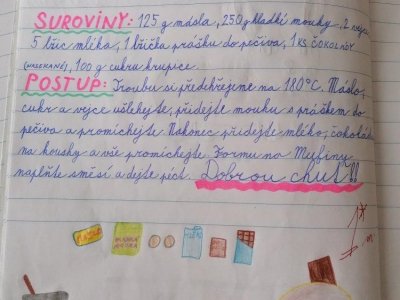 SUROVINY: 125 g másla, 250 g hladké mouky, 2 vejce
5 lžic mléka, 1 lžička prášku do pečiva, 1 KS ČOKOLÁDY
(NASEKANÉ), 100 g cukru krupice
POSTUP: Troubu si předehřejeme na 180°C. Máslo,
cukr a vejce ušlehejte, přidejte mouku s práškem do
pečiva a promíchejte. Nakonec přidejte mléko, čokoládu
na kousky a vše promíchejte. Formu na Mufiny
naplňte směsí a dejte péct. Dobrou chuť!!
HLADKÁ MOUKA
1*